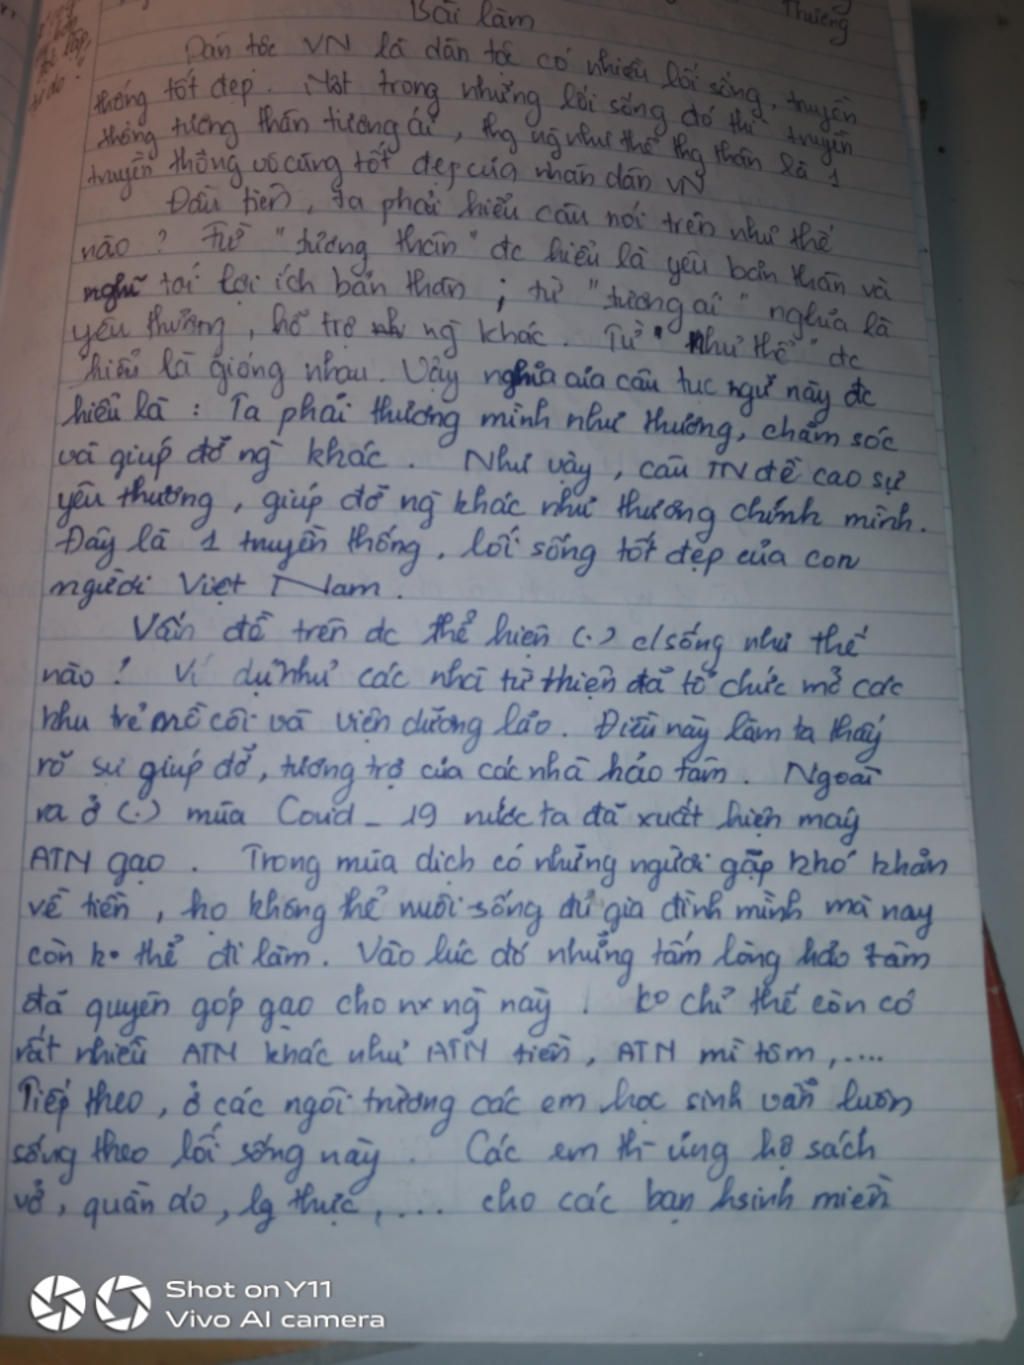 Bài làm
Thiếng
Dân tộc VN là dân tộc có nhiều lối sống, truyền
thống tốt đẹp. Một trong những lối sống đó thì truyền
thống tương thân tương ái, thg ng như thể thg thân là 1
truyền thống vô cùng tốt đẹp của nhân dân VN
Đầu tiên, ta phải hiểu câu nói trên như thế
nào? Từ "tương thân" đc hiểu là yêu bản thân và
nghĩ tới lợi ích bản thân ; từ "tương ái" nghĩa là
yêu thương, hỗ trợ ng khác. Từ "như thể" đc
hiểu là giống nhau. Vậy nghĩa của câu tục ngữ này đc
hiểu là : Ta phải thương mình như thương, chăm sóc
và giúp đỡ ng khác. Như vậy, câu TN đề cao sự
yêu thương, giúp đỡ ng khác như thương chính mình.
Đây là 1 truyền thống, lối sống tốt đẹp của con
người Việt Nam.
Vấn đề trên đc thể hiện (.) c/sống như thế
nào! Ví dụ như các nhà từ thiện đã tổ chức mở các
khu trẻ mồ côi và viện dưỡng lão. Điều này làm ta thấy
rõ sự giúp đỡ, tương trợ của các nhà hảo tâm. Ngoài
ra ở (.) mùa Covid - 19 nước ta đã xuất hiện máy
ATN gạo. Trong mùa dịch có những người gặp khó khăn
về tiền, họ không thể nuôi sống đủ gia đình mình mà nay
còn ko thể đi làm. Vào lúc đó những tấm lòng hảo tâm
đã quyên góp gạo cho nx ng này! ko chỉ thế còn có
rất nhiều ATN khác như ATN tiền, ATN mì tôm,....
Tiếp theo, ở các ngôi trường các em học sinh vẫn luôn
sống theo lối sống này. Các em th- ủng hộ sách
vở, quần áo, lg thực,.... cho các bạn hsinh miền
Shot on Y11
Vivo AI camera